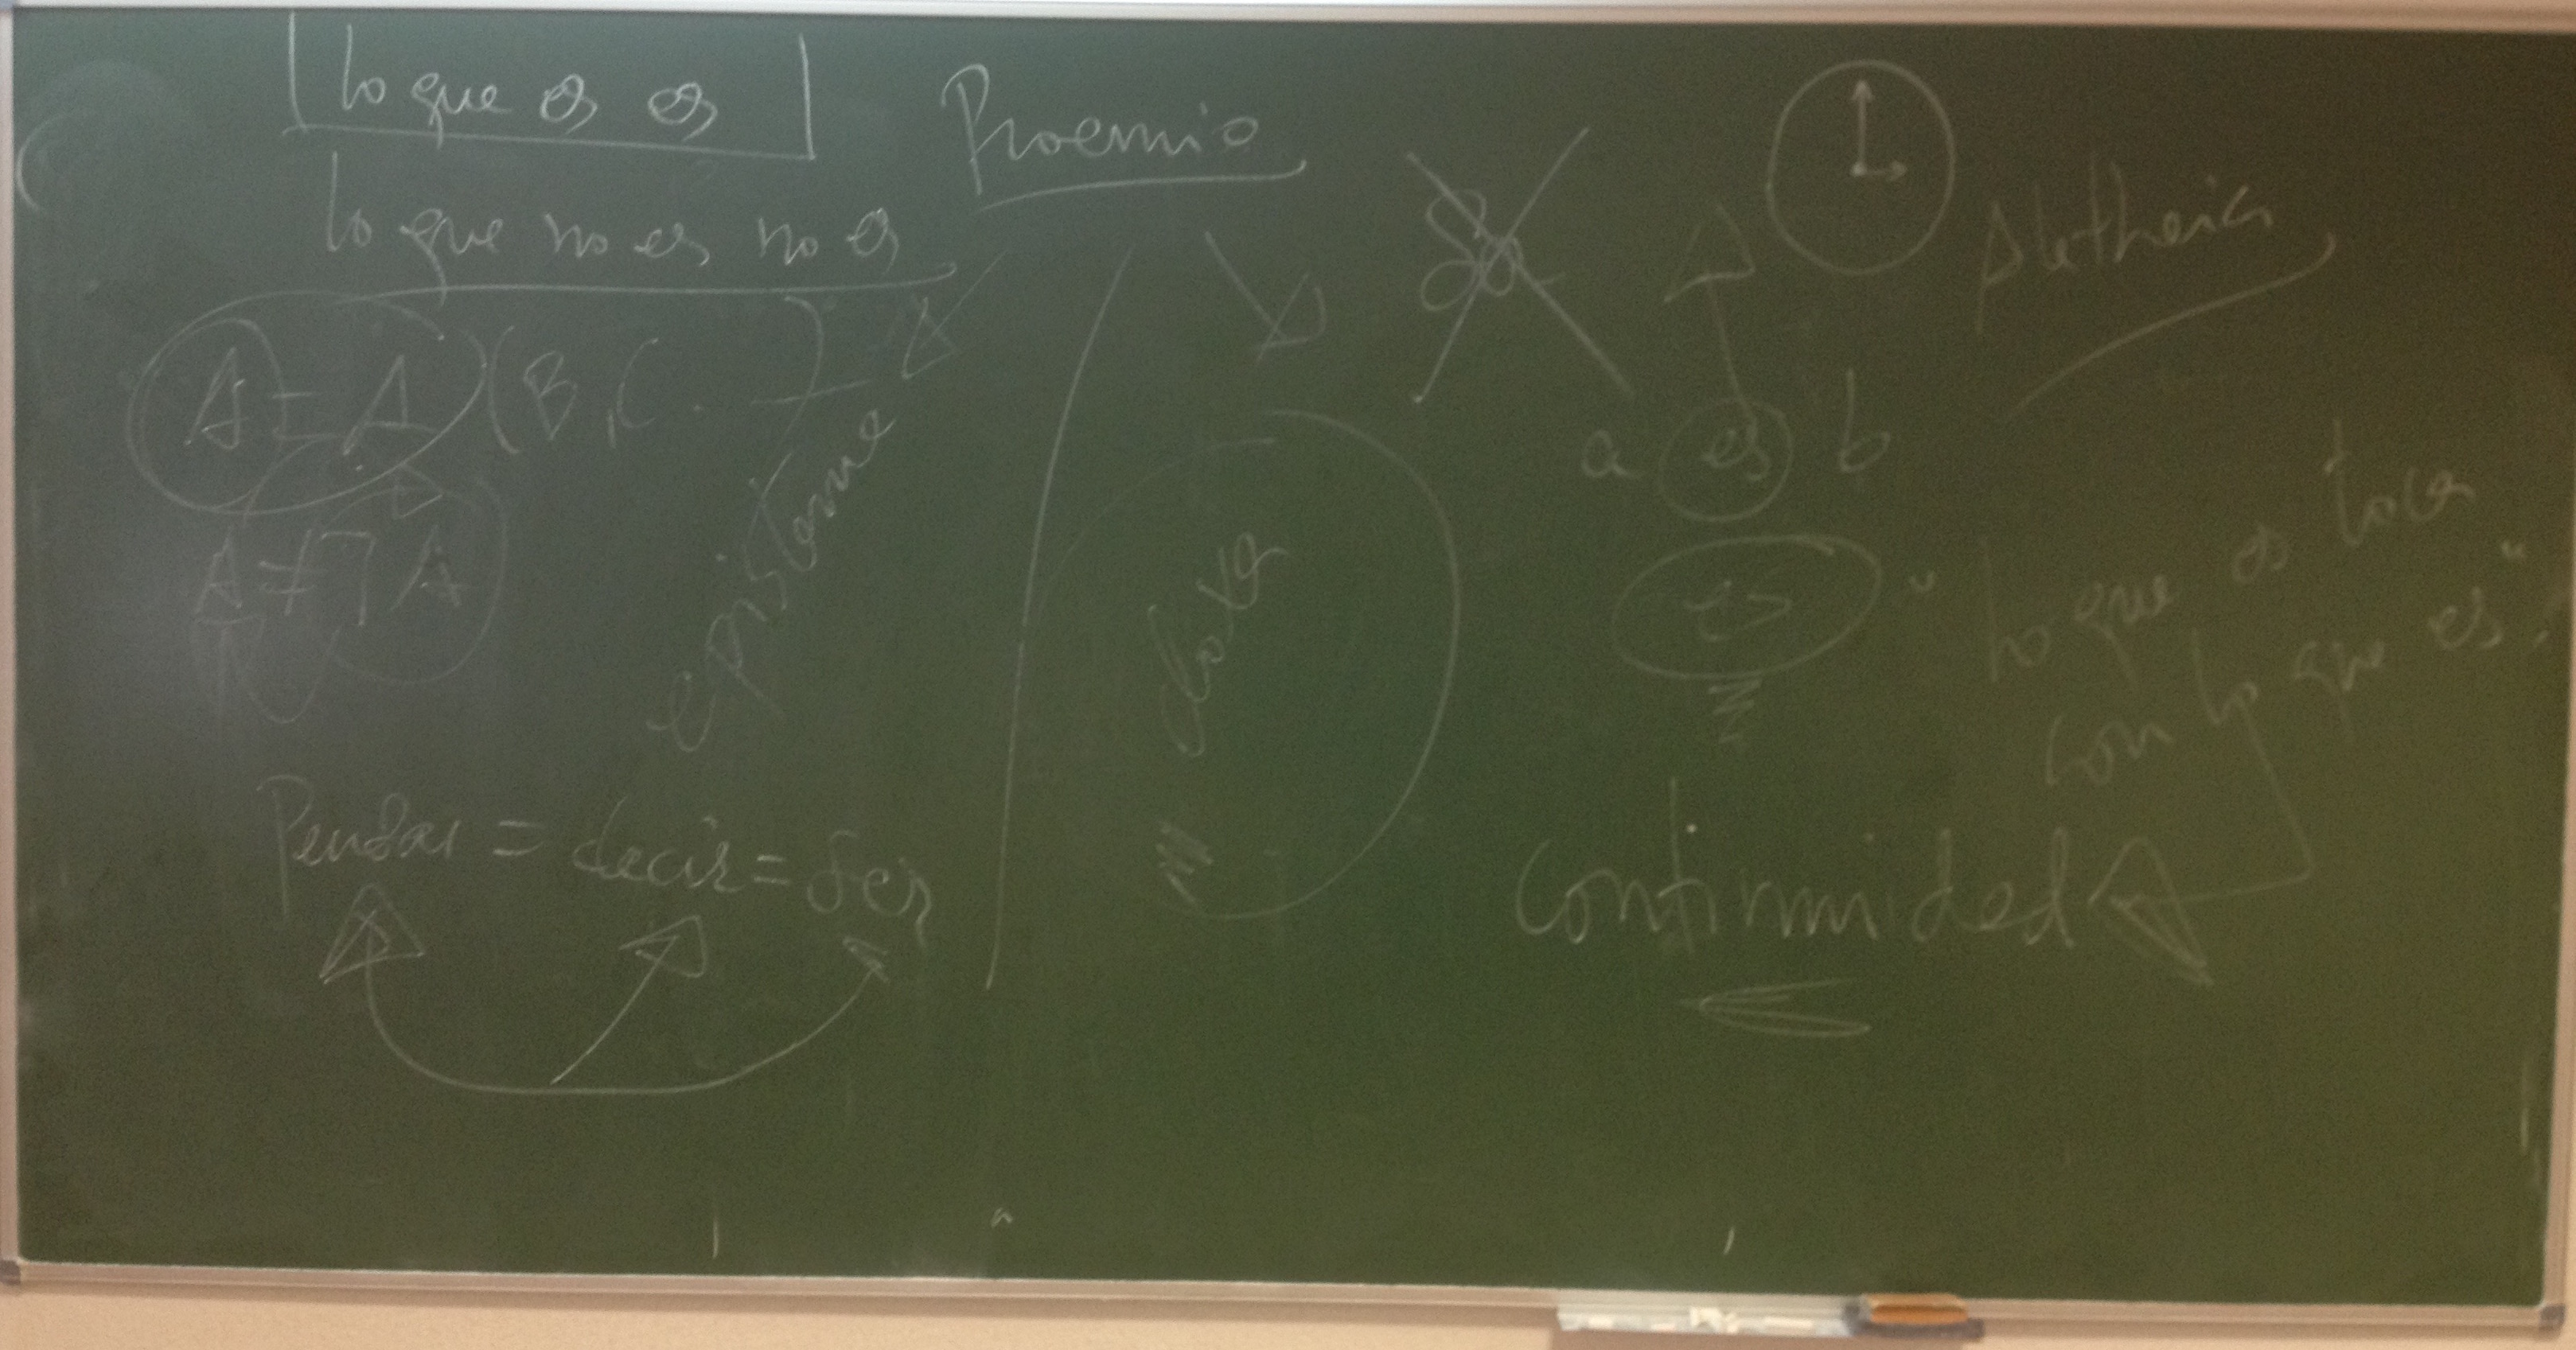 lo que es es
lo que no es no es
A = A (B, C . . )
A ≠ ¬ A
Proemio
episteme
doxa
Pensar = decir = Ser
Aletheia
a es b
es
"lo que es toca
con lo que es"
Continuidad